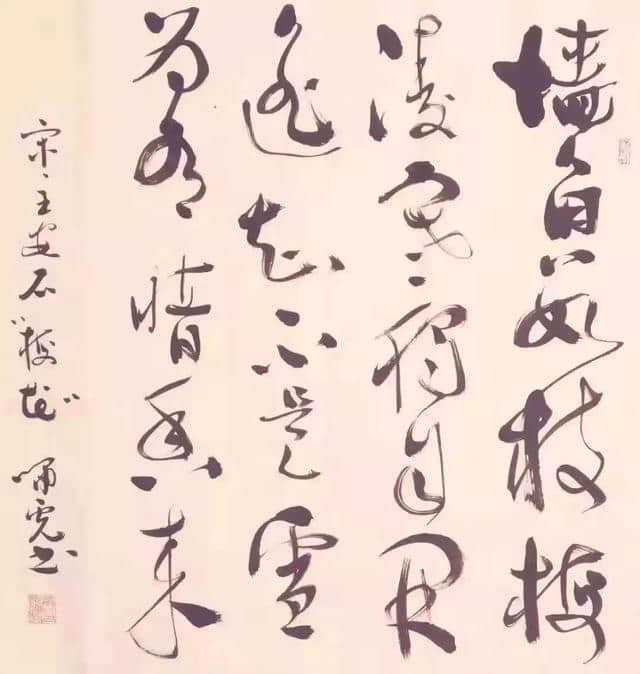 墙角数枝梅
凌寒独自开
遥知不是雪
为有暗香来
宋、王安石“梅花” 啸虎书